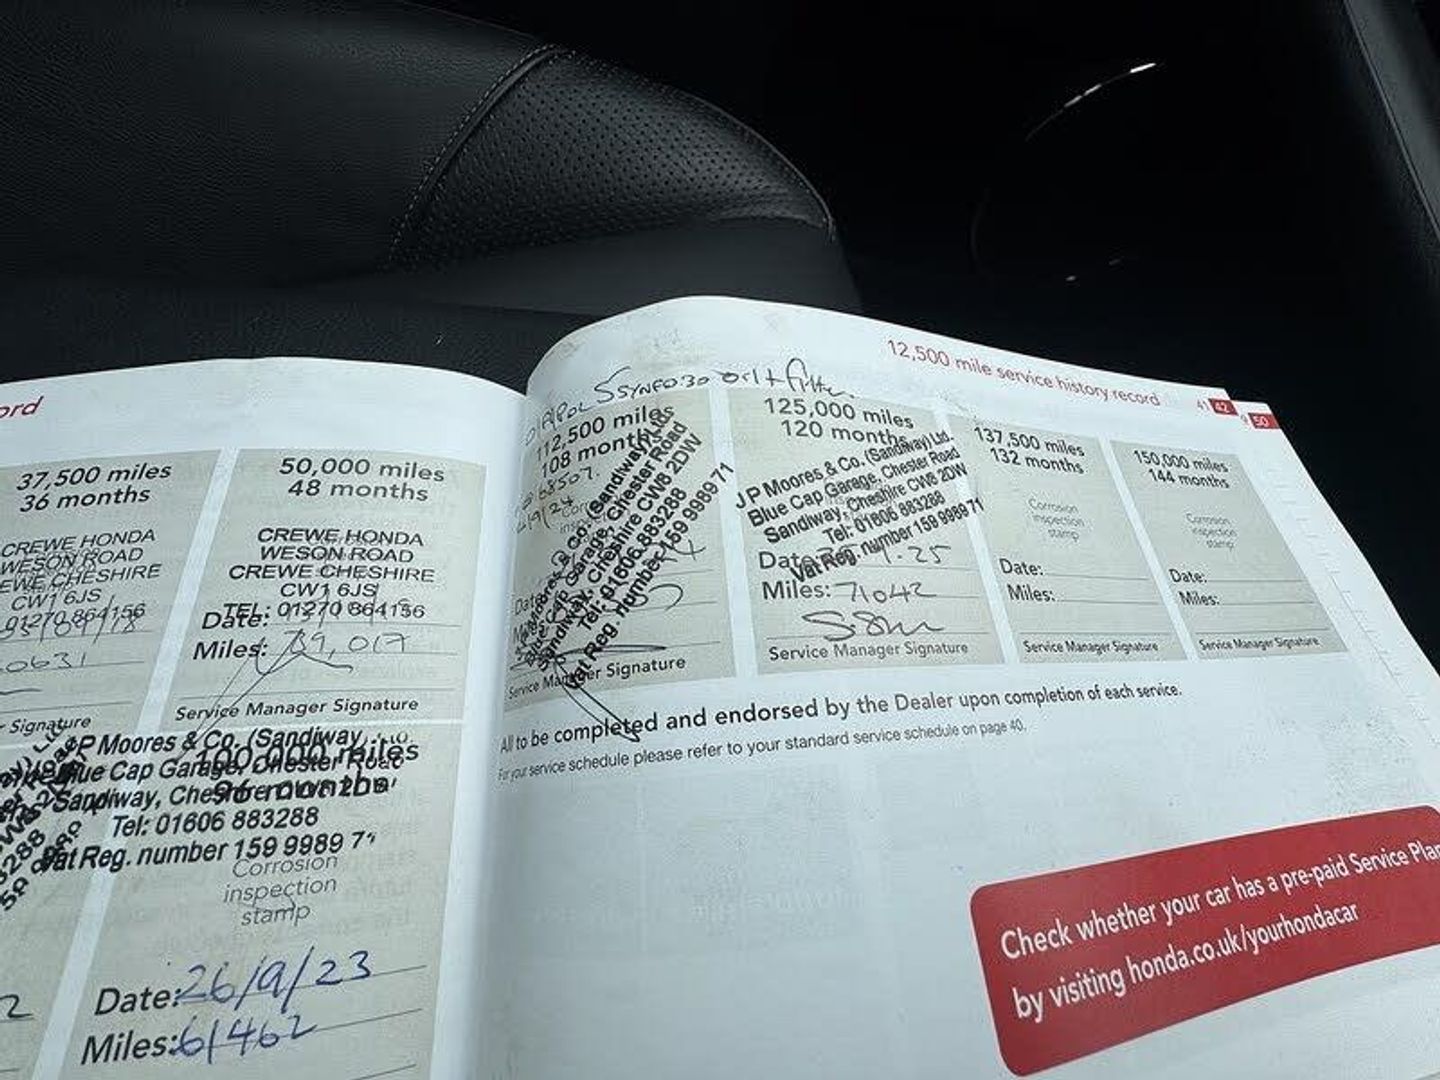 ord
37,500 miles
36 months
CREWE HONDA
WESON ROAD
EWE CHESHIRE
CW1 6JS
01270 864156
0631
r Signature
50,000 miles
48 months
CREWE HONDA
WESON ROAD
CREWE CHESHIRE
CW1 6JS
TEL: 01270 864156
Date:
Miles: 39,017
Service Manager Signature
J P Moores & Co. (Sandiway
Blue Cap Garage, Chester Road
Sandiway, Cheshire
Tel: 01606 883288
Vat Reg. number 159 9989 71
100,000 miles
96 months
Corrosion
inspection
stamp
Date: 26/9/23
Miles: 61462
12,500 mile service history record
41 42
50
oil + filter
112,500 miles
108 months
68507
J P Moores & Co. (Sandiway) Ltd.
Blue Cap Garage, Chester Road
Sandiway, Cheshire CW8 2DW
Tel: 01606 883288
Vat Reg. number 159 9989 71
Service Manager Signature
125,000 miles
120 months
J P Moores & Co. (Sandiway) Ltd.
Blue Cap Garage, Chester Road
Sandiway, Cheshire CW8 2DW
Tel: 01606 883288
Vat Reg. number 159 9989 71
Date: 25
Miles: 71042
Service Manager Signature
137,500 miles
132 months
Corrosion
inspection
stamp
Date:
Miles:
Service Manager Signature
150,000 miles
144 months
Corrosion
inspection
stamp
Date:
Miles:
Service Manager Signature
All to be completed and endorsed by the Dealer upon completion of each service.
For your service schedule please refer to your standard service schedule on page 40.
Check whether your car has a pre-paid Service Plan
by visiting honda.co.uk/yourhondacar